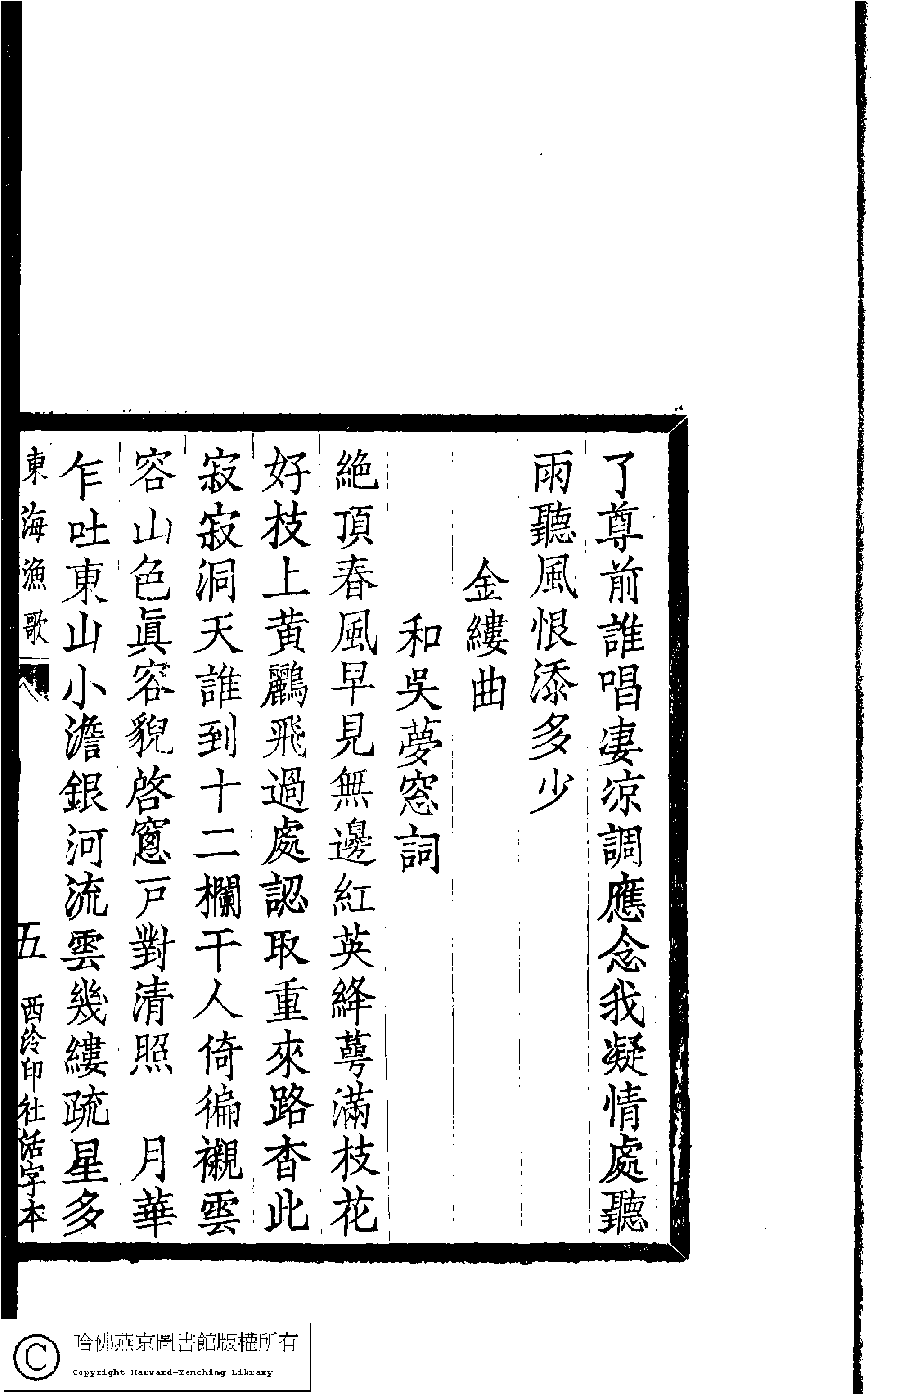 了尊前誰唱凄涼調應念我凝情處聽
雨聽風恨添多少
金縷曲
和吳夢窓詞
絶頂春風早見無邊紅英絳蕚滿枝花
好枝上黃鸝飛過處認取重來路杳此
寂寂洞天誰到十二欄干人倚徧襯雲
容山色眞容貌啓窻戸對清照　月華
乍吐東山小澹銀河流雲幾縷疏星多
東海漁歌
五
西泠印社活字本
哈佛燕京圖書館版權所有
Copyright Harvard-Yenching Library